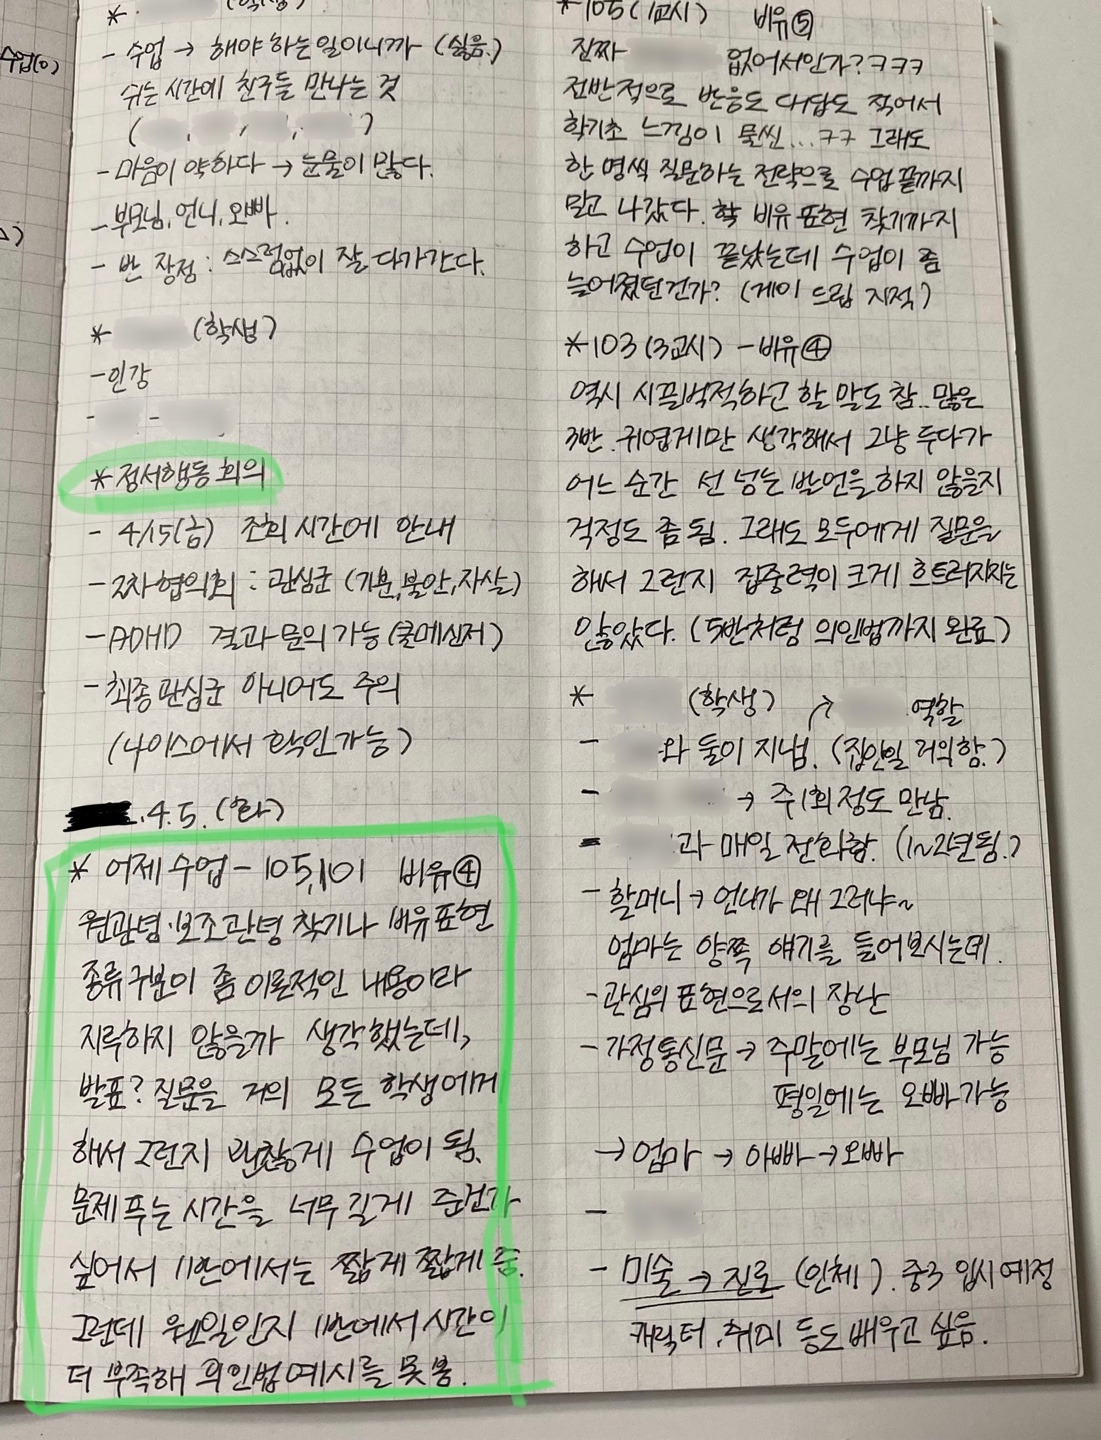 수업(o)
* (학생)
- 수업 → 해야 하는 일이니까 (싫음.)
쉬는 시간에 친구들 만나는 것
( , , , )
- 마음이 약하다 → 눈물이 많다.
- 부모님, 언니, 오빠.
- 반 장점 : 스스럼없이 잘 다가간다.
* (학생)
- 인강
- -
* 정서행동 회의
- 4/15(금) 조회 시간에 안내
- 2차 협의회 : 관심군 (기분, 불안, 자살)
- ADHD 결과 문의 가능 (쿨메신저)
- 최종 관심군 아니어도 주의
(나이스에서 확인가능)
.4.5. (화)
* 어제 수업 - 105, 101 비유④
원관념·보조관념 찾기나 비유 표현
종류 구분이 좀 이론적인 내용이라
지루하지 않을까 생각했는데,
발표? 질문을 거의 모든 학생에게
해서 그런지 괜찮게 수업이 됨.
문제 푸는 시간을 너무 길게 준건가
싶어서 1반에서는 짧게 짧게 줌.
그런데 웬일인지 1반에서 시간이
더 부족해 의인법 예시를 못 봄.
*105 (1교시) 비유⑤
진짜 없어서인가? ㅋㅋㅋ
전반적으로 반응도 대답도 적어서
학기초 느낌이 물씬... ㅋㅋ 그래도
한 명씩 질문하는 전략으로 수업 끝까지
밀고 나갔다. 핰 비유 표현 찾기까지
하고 수업이 끝났는데 수업이 좀
늘어졌던건가? (게이 드립 지적)
*103 (3교시) - 비유④
역시 시끌벅적하고 할 말도 참.. 많은
3반. 귀엽게만 생각해서 그냥 두다가
어느 순간 선 넘는 발언을 하지 않을지
걱정도 좀 됨. 그래도 모두에게 질문을
해서 그런지 집중력이 크게 흐트러지지는
않았다. (5반처럼 의인법까지 완료)
* (학생) ↗ 역할
- 와 둘이 지냄. (집안일 거의함.)
- → 주1회 정도 만남.
- 과 매일 전화함. (1~2년됨.)
- 할머니 → 언니가 왜 그러냐~
엄마는 양쪽 얘기를 들어보시는데.
- 관심의 표현으로서의 장난
- 가정통신문 → 주말에는 부모님 가능
평일에는 오빠 가능
→ 엄마 → 아빠 → 오빠
-
- 미술 → 진로 (인체). 중3 입시 예정
캐릭터, 취미 등도 배우고 싶음.